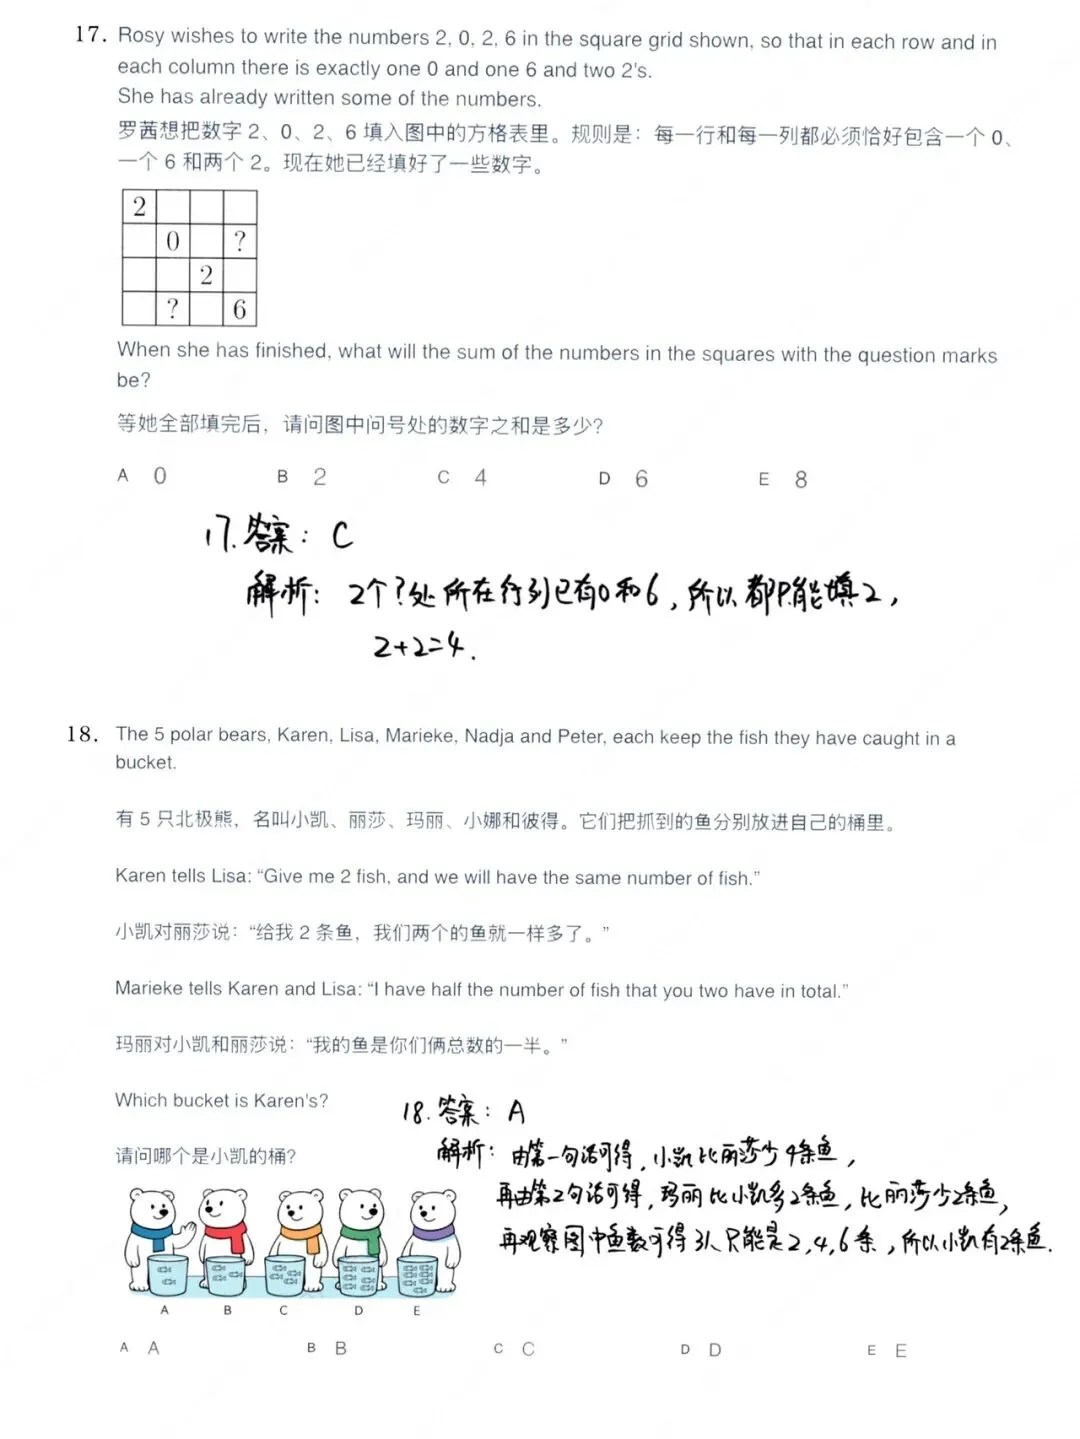 17. Rosy wishes to write the numbers 2, 0, 2, 6 in the square grid shown, so that in each row and in
each column there is exactly one 0 and one 6 and two 2's.
She has already written some of the numbers.
罗茜想把数字 2、0、2、6 填入图中的方格表里。规则是：每一行和每一列都必须恰好包含一个 0、
一个 6 和两个 2。现在她已经填好了一些数字。
2
0 ?
2
? 6
When she has finished, what will the sum of the numbers in the squares with the question marks
be?
等她全部填完后，请问图中问号处的数字之和是多少？
A 0 B 2 C 4 D 6 E 8
17. 答案：C
解析：2个?处所在行列已有0和6，所以都只能填2，
2+2=4.
18. The 5 polar bears, Karen, Lisa, Marieke, Nadja and Peter, each keep the fish they have caught in a
bucket.
有 5 只北极熊，名叫小凯、丽莎、玛丽、小娜和彼得。它们把抓到的鱼分别放进自己的桶里。
Karen tells Lisa: “Give me 2 fish, and we will have the same number of fish.”
小凯对丽莎说：“给我 2 条鱼，我们两个的鱼就一样多了。”
Marieke tells Karen and Lisa: “I have half the number of fish that you two have in total.”
玛丽对小凯和丽莎说：“我的鱼是你们俩总数的一半。”
Which bucket is Karen's?
请问哪个是小凯的桶？
18. 答案：A
解析：由第一句话可得，小凯比丽莎少4条鱼，
再由第2句话可得，玛丽比小凯多2条鱼，比丽莎少2条鱼，
再观察图中鱼数可得3人只能是2,4,6条，所以小凯有2条鱼.
A B C D E
A A B B C C D D E E